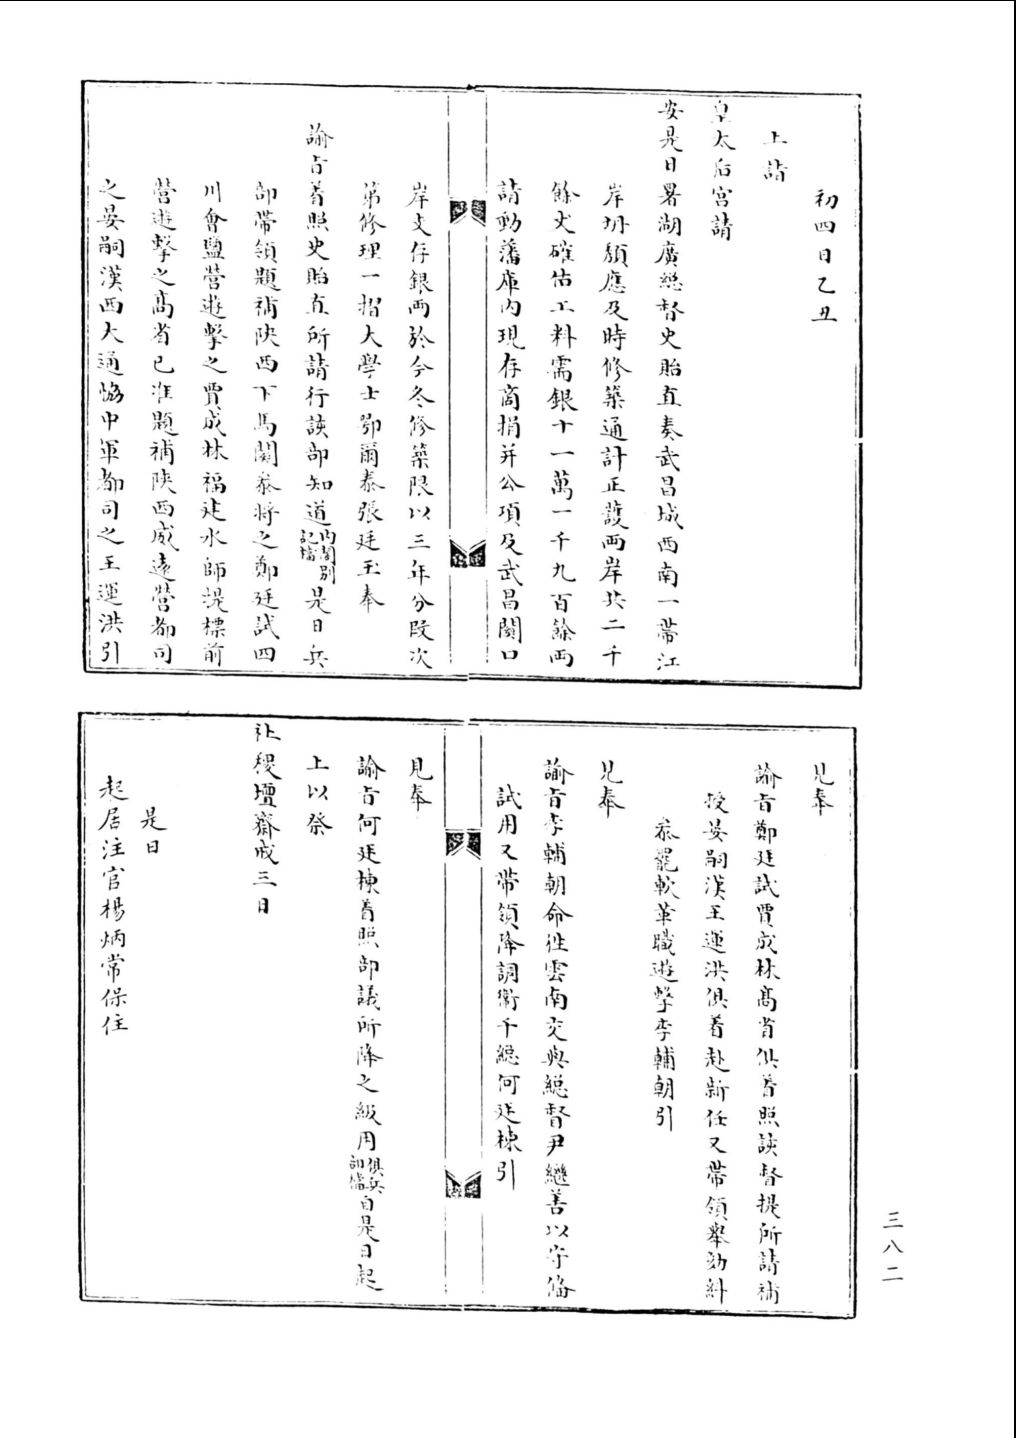 初四日乙丑
上詣
皇太后宮請
安是日署湖廣緫督史貽直奏武昌城西南一帶江
岸坍頹應及時修築通計正護兩岸共二千
餘丈確估工料需銀十一萬一千九百餘兩
請動藩庫內現存商捐并公項及武昌關口
岸支存銀兩於今冬修築限以三年分段次
第修理一摺大學士鄂爾泰張廷玉奉
諭旨着照史貽直所請行該部知道內閣別記檔是日兵
部帶領題補陝西下馬關叅將之鄭廷試四
川會鹽營遊擊之賈成林福建水師提標前
營遊擊之高省已准題補陝西威遠營都司
之晏嗣漢西大通恊中軍都司之王運洪引
見奉
諭旨鄭廷試賈成林高省俱着照該督提所請補
授晏嗣漢王運洪俱着赴新任又帶領舉劾糾
叅罷軟革職遊擊李輔朝引
見奉
諭旨李輔朝命徃雲南交與緫督尹繼善以守俻
試用又帶領降調衛千緫何廷棟引
見奉
諭旨何廷棟着照部議所降之級用俱兵記檔自是日起
上以祭
社稷壇齋戒三日
是日
起居注官楊炳常保住
三八二